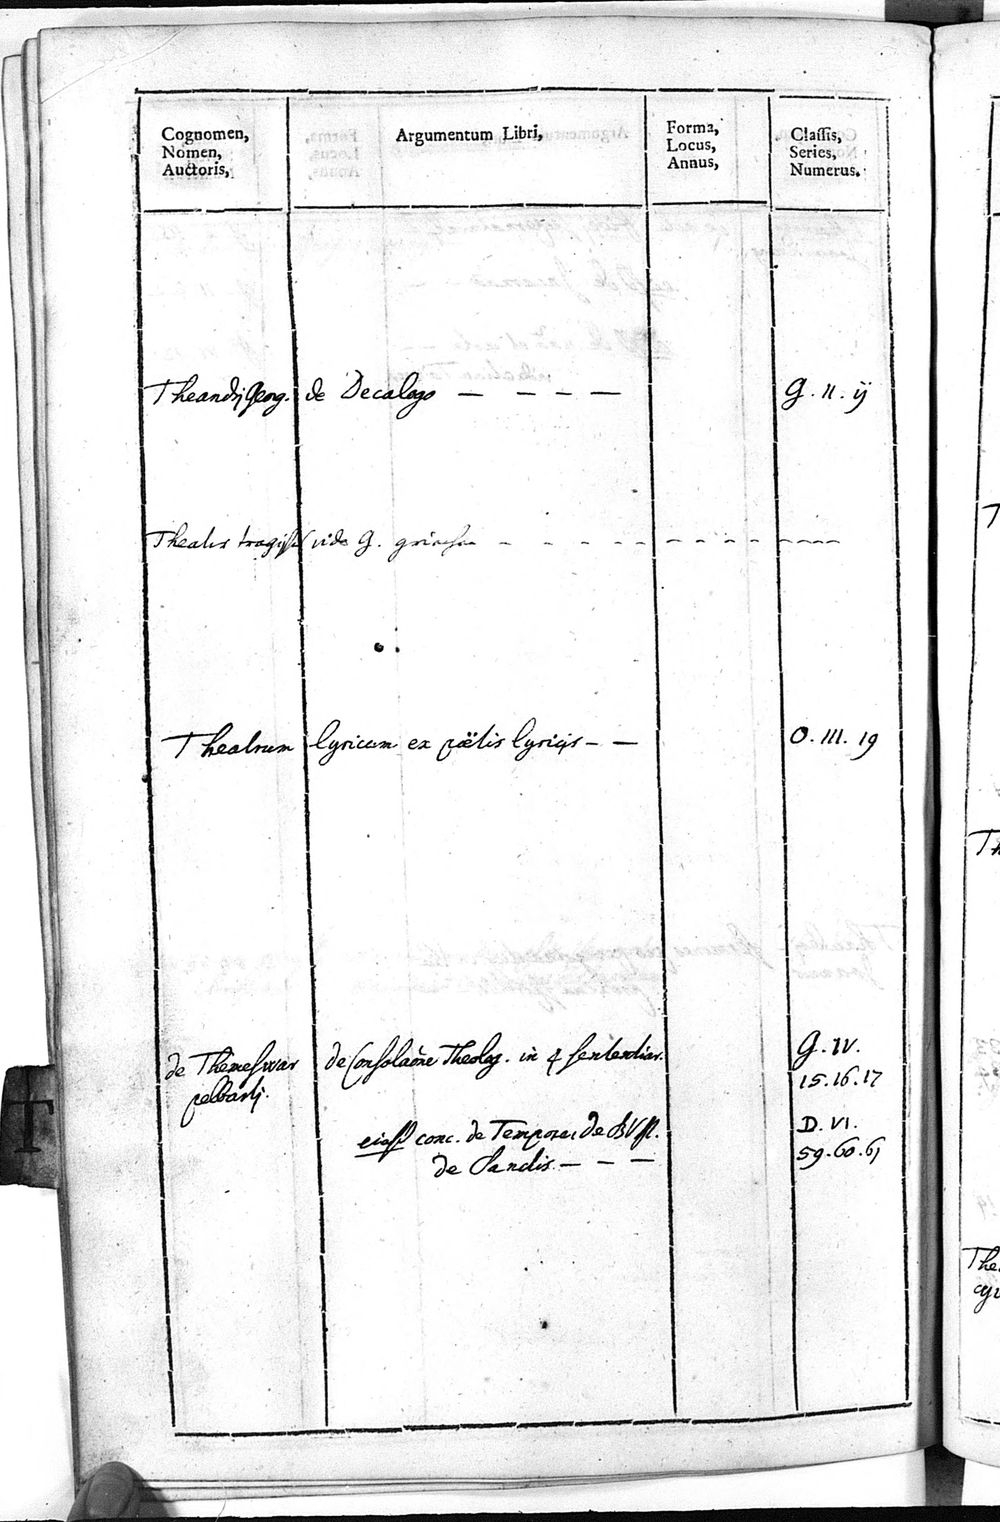 Cognomen,
Nomen,
Auctoris,
Argumentum Libri,
Forma,
Locus,
Annus,
Classis,
Series,
Numerus.
Theandrj Georg. de Decalogo — — — — G. II. ij
vide G.
Theatrum lyricum ex poëtis lyricis — — O. III. 19
de Themeswar de Consolaõne Theolog. in 4 sententiar. G. IV.
pelbartj. 15. 16. 17
eiusd conc. de Tempore, de BV D. VI.
de Sanctis — — — 59. 60. 61